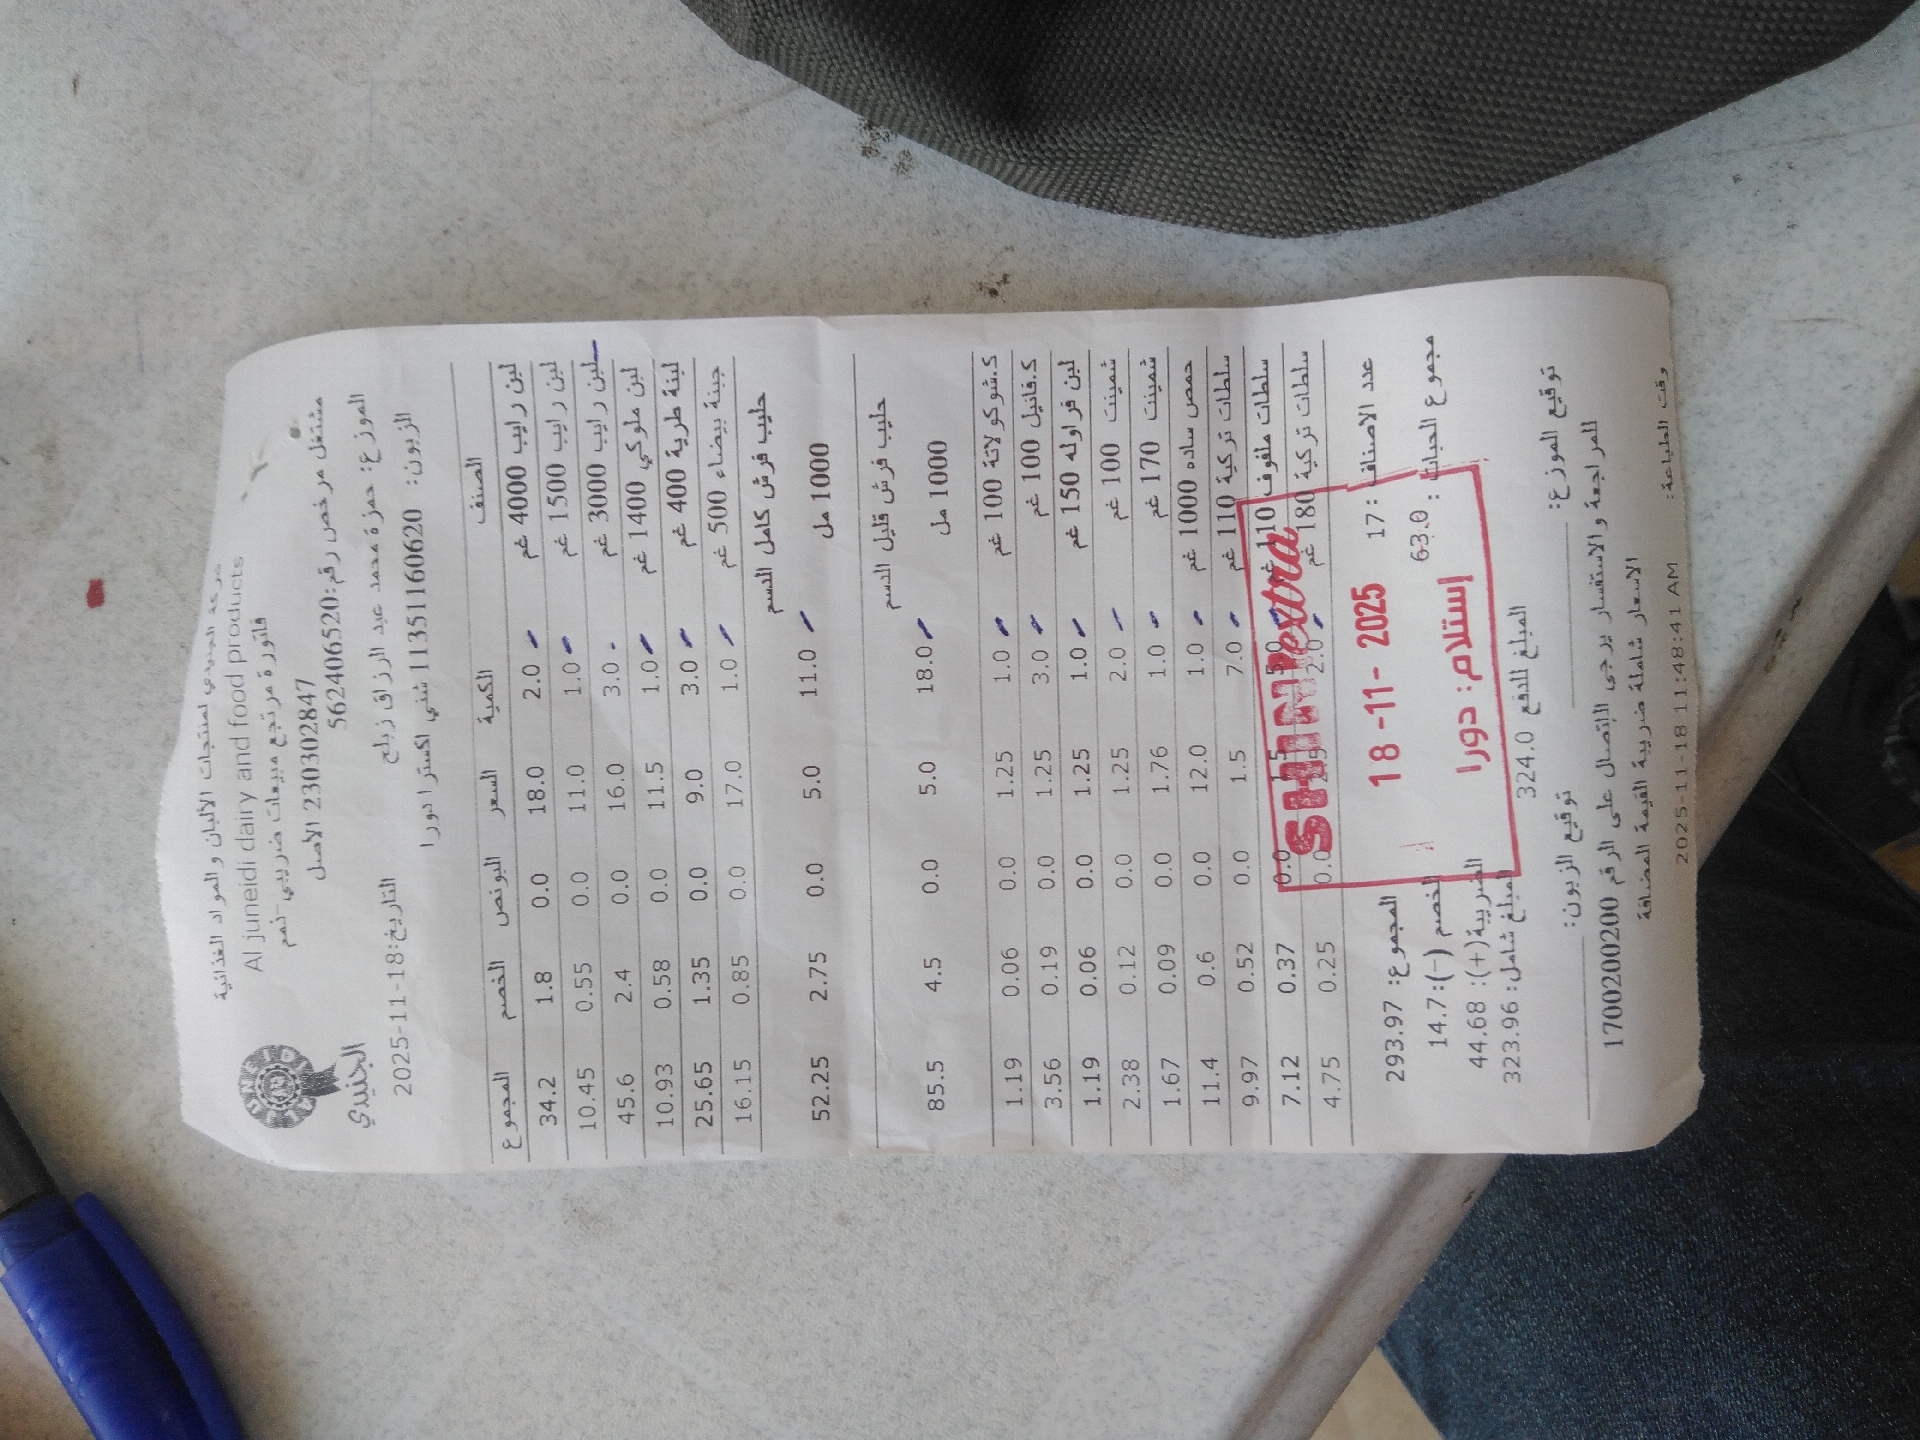 شركة الجنيدي لمنتجات الالبان والمواد الغذائية
Al juneidi dairy and food products
فاتورة مرتجع مبيعات ضريبي-ذمم
230302847 الاصل
مشتغل مرخص رقم:562406520
الجنيدي
الموزع: حمزة محمد عبد الرزاق زبلح
التاريخ:18-11-2025
الزبون: 11351160620 شني اكسترا دورا
الصنف الكمية السعر البونص الخصم المجموع
لبن رايب 4000 غم 2.0 18.0 0.0 1.8 34.2
لبن رايب 1500 غم 1.0 11.0 0.0 0.55 10.45
لبن رايب 3000 غم 3.0 16.0 0.0 2.4 45.6
لبن ملوكي 1400 غم 1.0 11.5 0.0 0.58 10.93
لبنة طرية 400 غم 3.0 9.0 0.0 1.35 25.65
جبنة بيضاء 500 غم 1.0 17.0 0.0 0.85 16.15
حليب فرش كامل الدسم
1000 مل 11.0 5.0 0.0 2.75 52.25
حليب فرش قليل الدسم
1000 مل 18.0 5.0 0.0 4.5 85.5
ك.شوكولاتة 100 غم 1.0 1.25 0.0 0.06 1.19
ك.فانيل 100 غم 3.0 1.25 0.0 0.19 3.56
لبن فراوله 150 غم 1.0 1.25 0.0 0.06 1.19
شمينت 100 غم 2.0 1.25 0.0 0.12 2.38
شمينت 170 غم 1.0 1.76 0.0 0.09 1.67
حمص ساده 1000 غم 1.0 12.0 0.0 0.6 11.4
سلطات تركية 110 غم 7.0 1.5 0.0 0.52 9.97
سلطات ملفوف 110 غم 5.0 1.5 0.0 0.37 7.12
سلطات تركية 180 غم 2.0 0.0 0.25 4.75
extra
18-11-2025
إستلام: دورا
عدد الاصناف : 17 المجموع: 293.97
مجموع الحبات : 63.0 الخصم (-): 14.7
الضريبة(+): 44.68
المبلغ للدفع 324.0 المبلغ شامل: 323.96
توقيع الموزع: توقيع الزبون:
للمراجعة والاستفسار يرجى الإتصال على الرقم 1700200200
الاسعار شاملة ضريبة القيمة المضافة
وقت الطباعة: 2025-11-18 11:48:41 AM